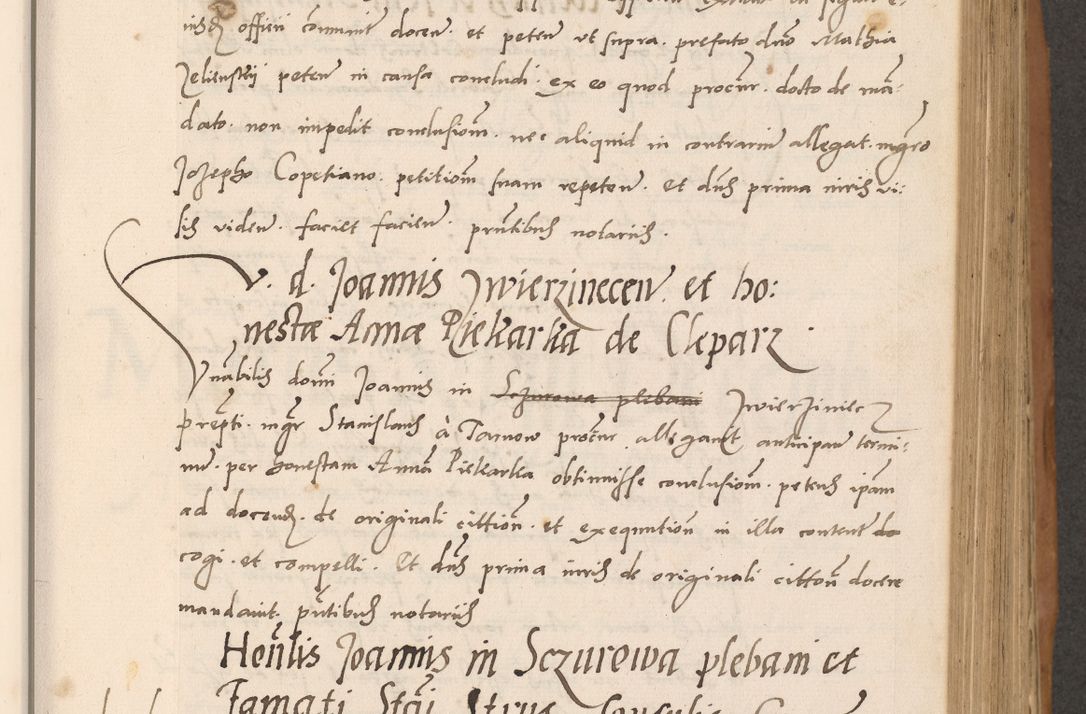 offici cōmunit docen̄ et peten̄ ut supra. prefato dn̄o Mathia
Zelienskij peten̄ in causa concludi. ex eo quod procūr. docto de mā-
dato. non impedit conclusionē. nec aliquid in contrariū allegat. mḡro
Jozepho Copetiano. petitionē suam repeten̄. et dn̄s prima iuris vi-
sis viden̄. faciet facien̄. pn̄tibus notariis.
V. d. Joannis Zwierzinecen̄. et ho:
nestæ Annæ Piekarka de Cleparz
Vn̄rabilis domī Joannis in Sczurowa plebani Zwierziniec
prep̄ti. mḡr Stanislaus à Tarnow procūr allegauit anticipatū termi-
nū. per honestam Annā Piekarka obtinuisse conclusionē. petens ipam
ad docend. de originali cittiōn. et exequutiōn in illa content do
cogi. et compelli. Et dn̄s prima iuris de originali cittōn docere
mandauit. pn̄tibus notariis
Hon̄lis Joannis in Sczurewa plebani et
Famati Stāi